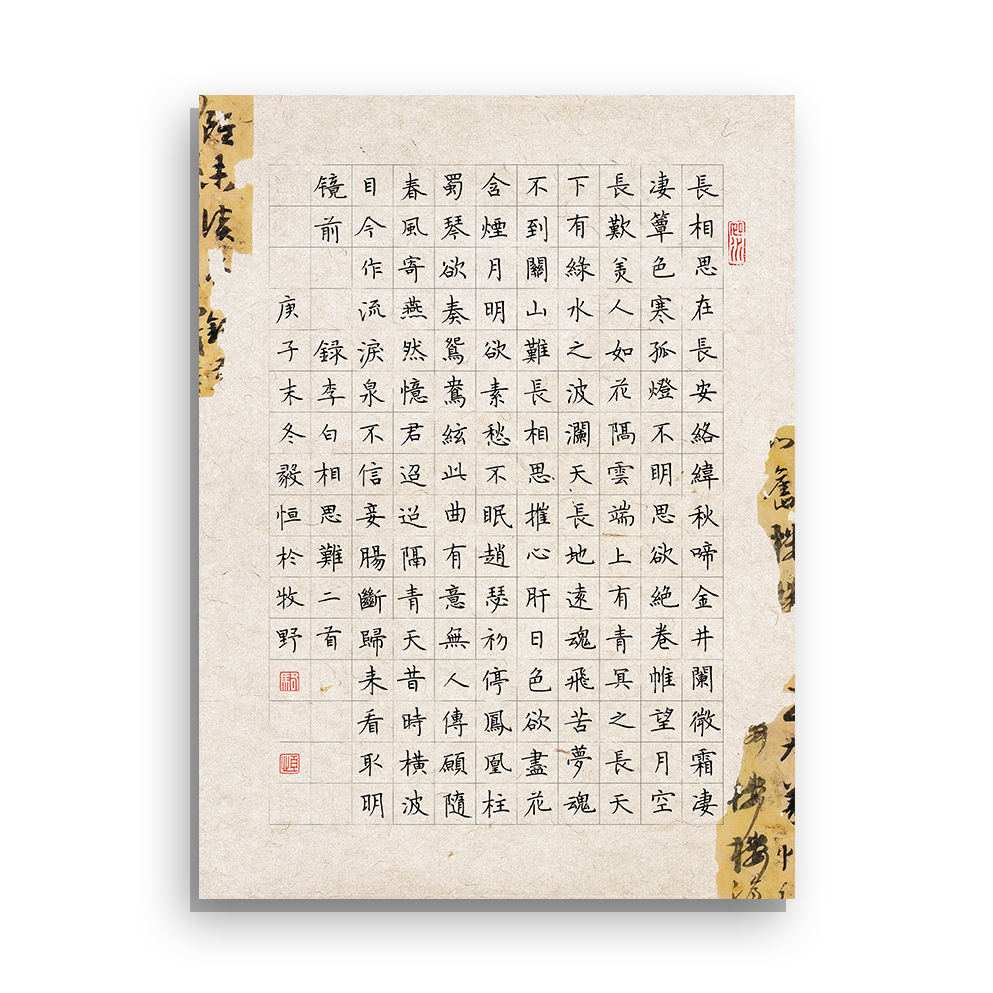 長相思在長安絡緯秋啼金井闌微霜凄
凄簟色寒孤燈不明思欲絶卷帷望月空
長歎美人如花隔雲端上有青冥之長天
下有綠水之波瀾天長地遠魂飛苦夢魂
不到關山難長相思摧心肝日色欲盡花
含煙月明欲素愁不眠趙瑟初停鳳凰柱
蜀琴欲奏鴛鴦絃此曲有意無人傳願隨
春風寄燕然憶君迢迢隔青天昔時橫波
目今作流淚泉不信妾腸斷歸来看取明
镜前 録李白相思難二首
庚子末冬毅恒於牧野